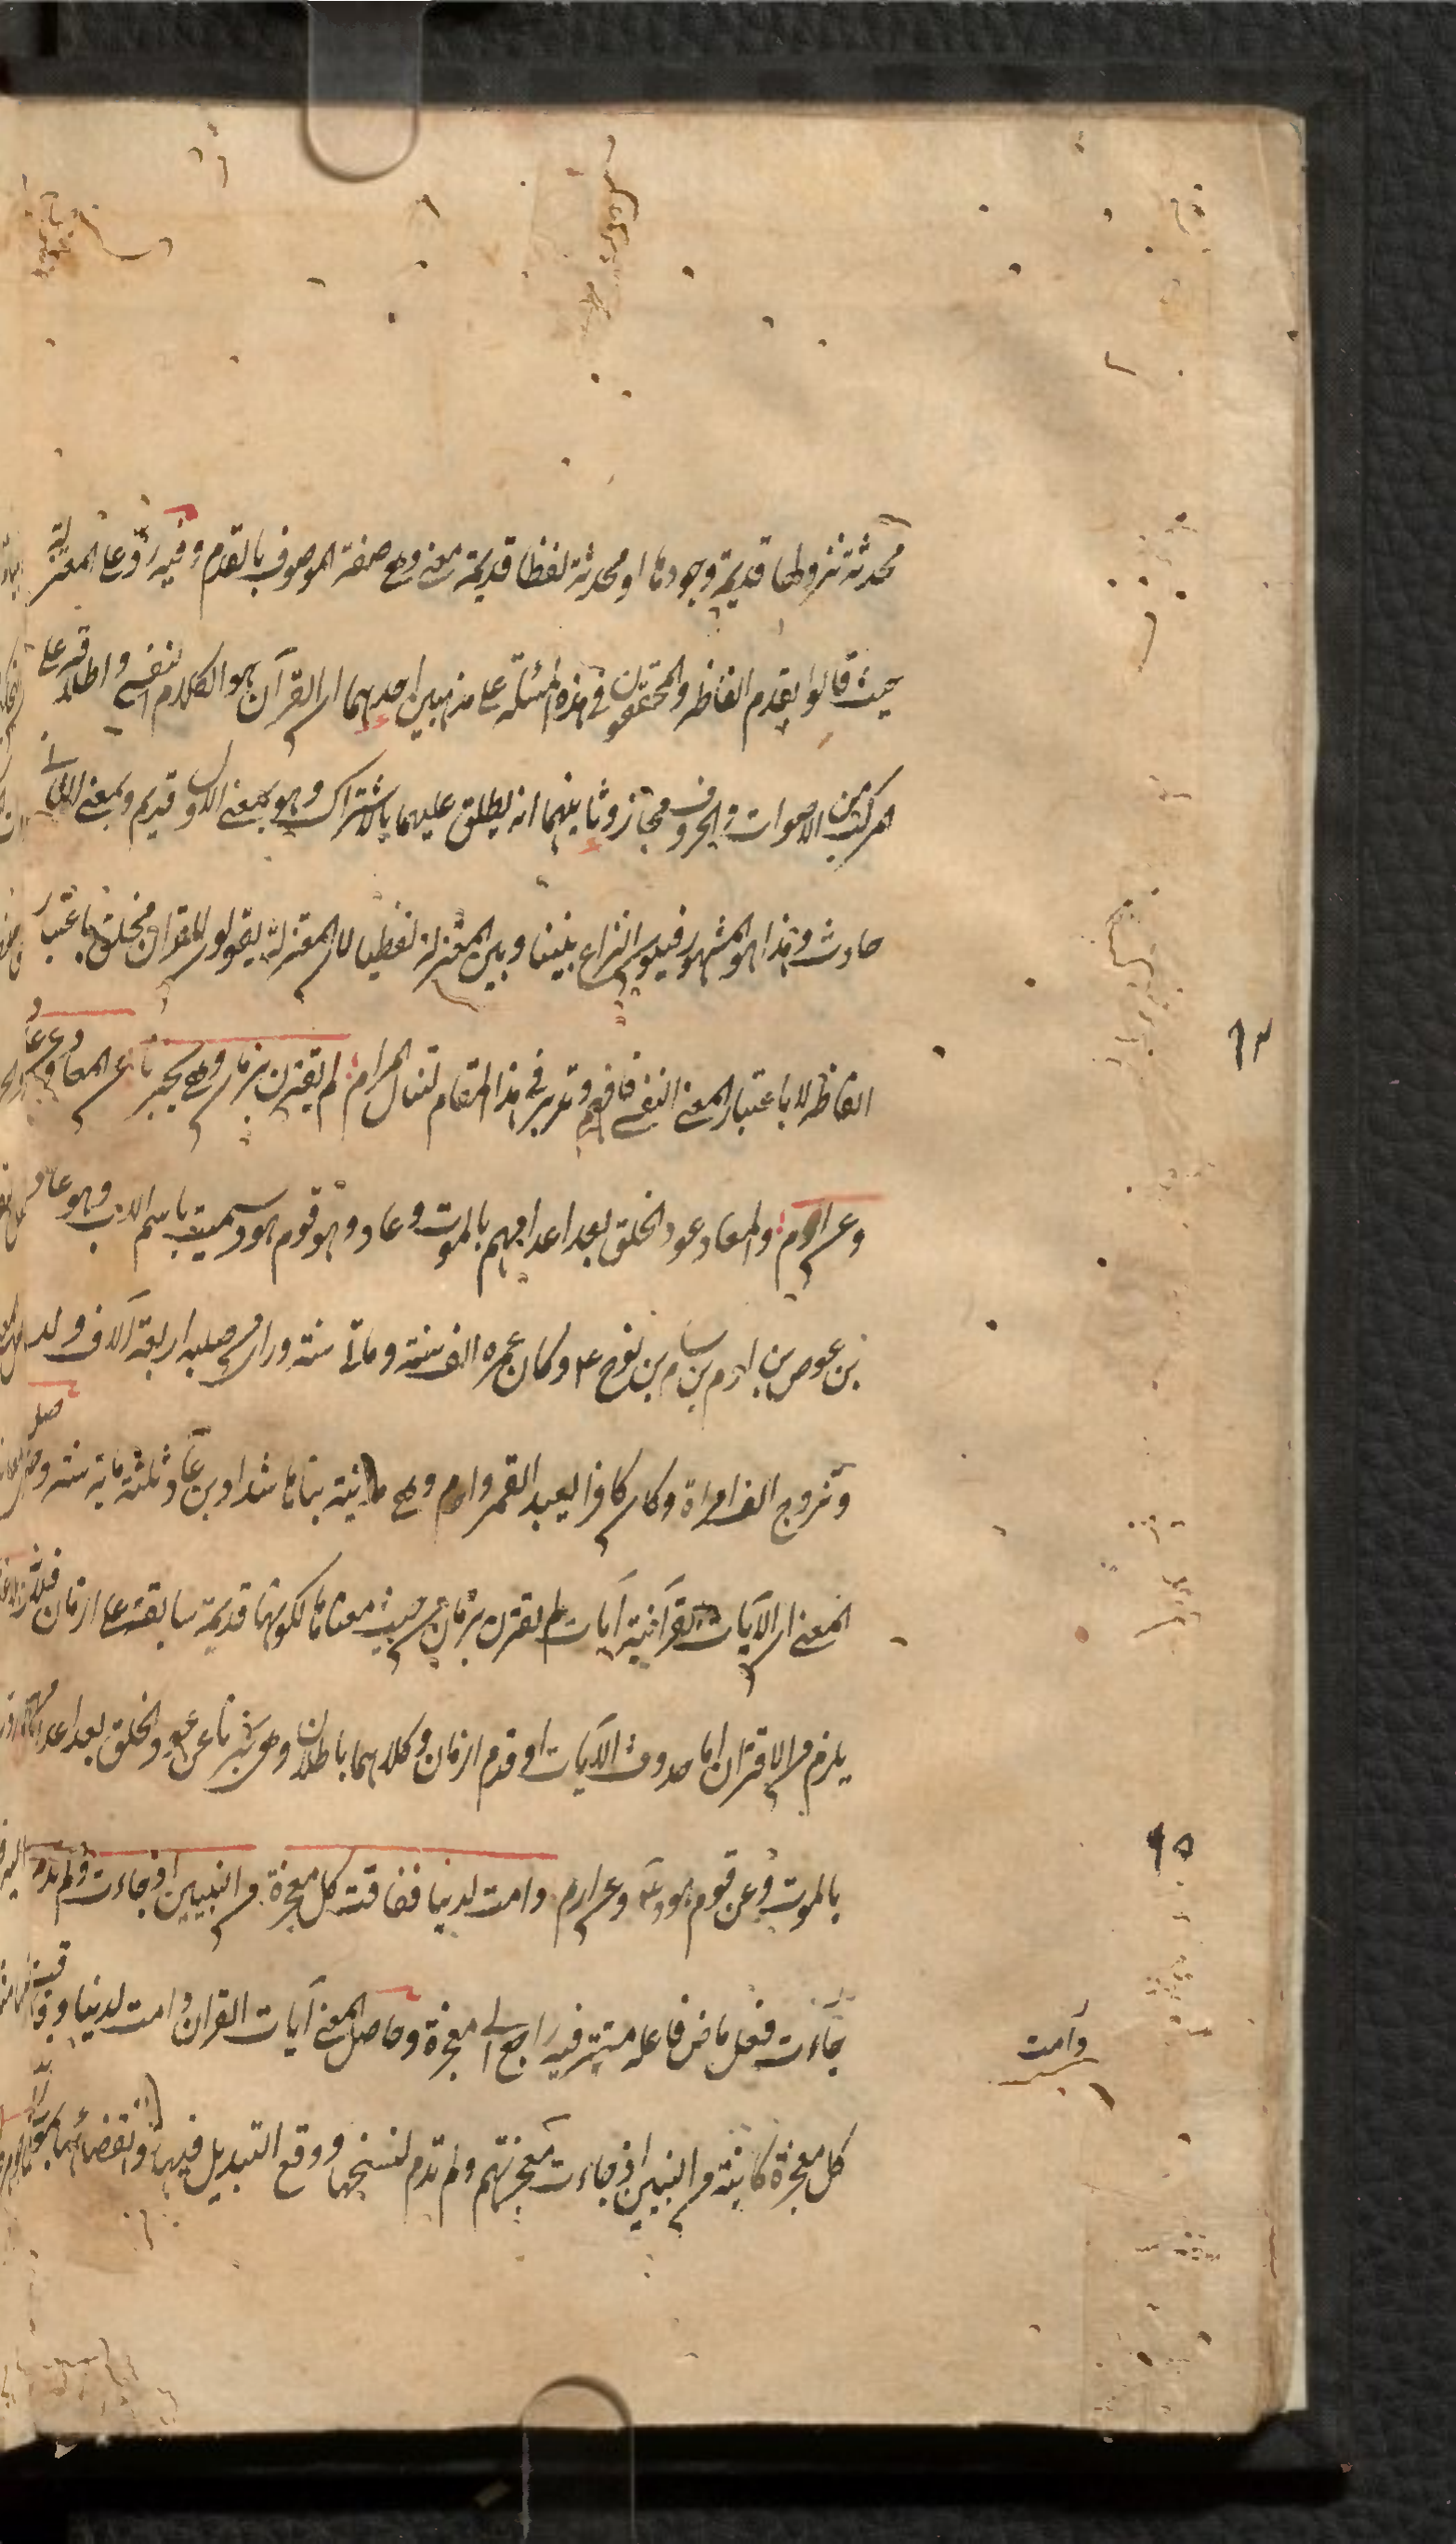 محدثة نزولها قديمة وجودها او محدثة لفظا قديمة معنى وهى صفة الموصوف بالقدم وفيه ردّ على المعتزلة
حيث قالوا بقدم الفاظه والمحققون فى هذه المسئلة على مذهبين احدهما ان القرآن هو الكلام النفسى واطلاقه على
المركب من الاصوات والحروف مجاز وثانيهما انه يطلق عليهما بالاشتراك وهو بمعنى الاول قديم وبمعنى الثانى
حادث وهذا هو المشهور فيكون النزاع بيننا وبين المعتزلة لفظيا لان المعتزلة يقولون القران مخلوق باعتبار
الفاظه لا باعتبار المعنى النفسى فافهم وتدبر فى هذا المقام لتنال المرام لم يقترن بزمان وهى تخبرنا عن المعاد وعن عاد
وعن ارم والمعاد عود الخلق بعد اعدامهم بالموت وعاد وهو قوم هود سميت باسم الاب وهو عاد
بن عوص بن ارم بن سام بن نوح ع م وكان عمره الف سنة ومأتا سنة وراى من صلبه اربعة آلاف ولد
وتزوج الف امراة وكان كافرا يعبد القمر وارم وهى مدينة بناها شداد بن عاد ثلثة ماية سنة
المعنى ان الآيات القرآنية آيات لم يقترن بزمان من حيث معناها لكونها قديمة سابقة على ازمان
يلزم من الاقتران اما حدوث الآيات او قدم ازمان وكلاهما باطلان وهى تخبرنا عن عود الخلق بعد اعدامهم
بالموت وعن قوم هود ع م وعن ارم دامت لدينا ففاقت كل معجزة من النبيين اذ جاءت ولم تدم
جاءت فعل ماض فاعله مستتر فيه راجع الى معجزة وحاصل المعنى آيات القران دامت لدينا وفاقت
كل معجزة كاينة من النبيين اذ جاءت معجزتهم ولم تدم لنسخها ووقع التبديل فيها وانقضائها
دامت